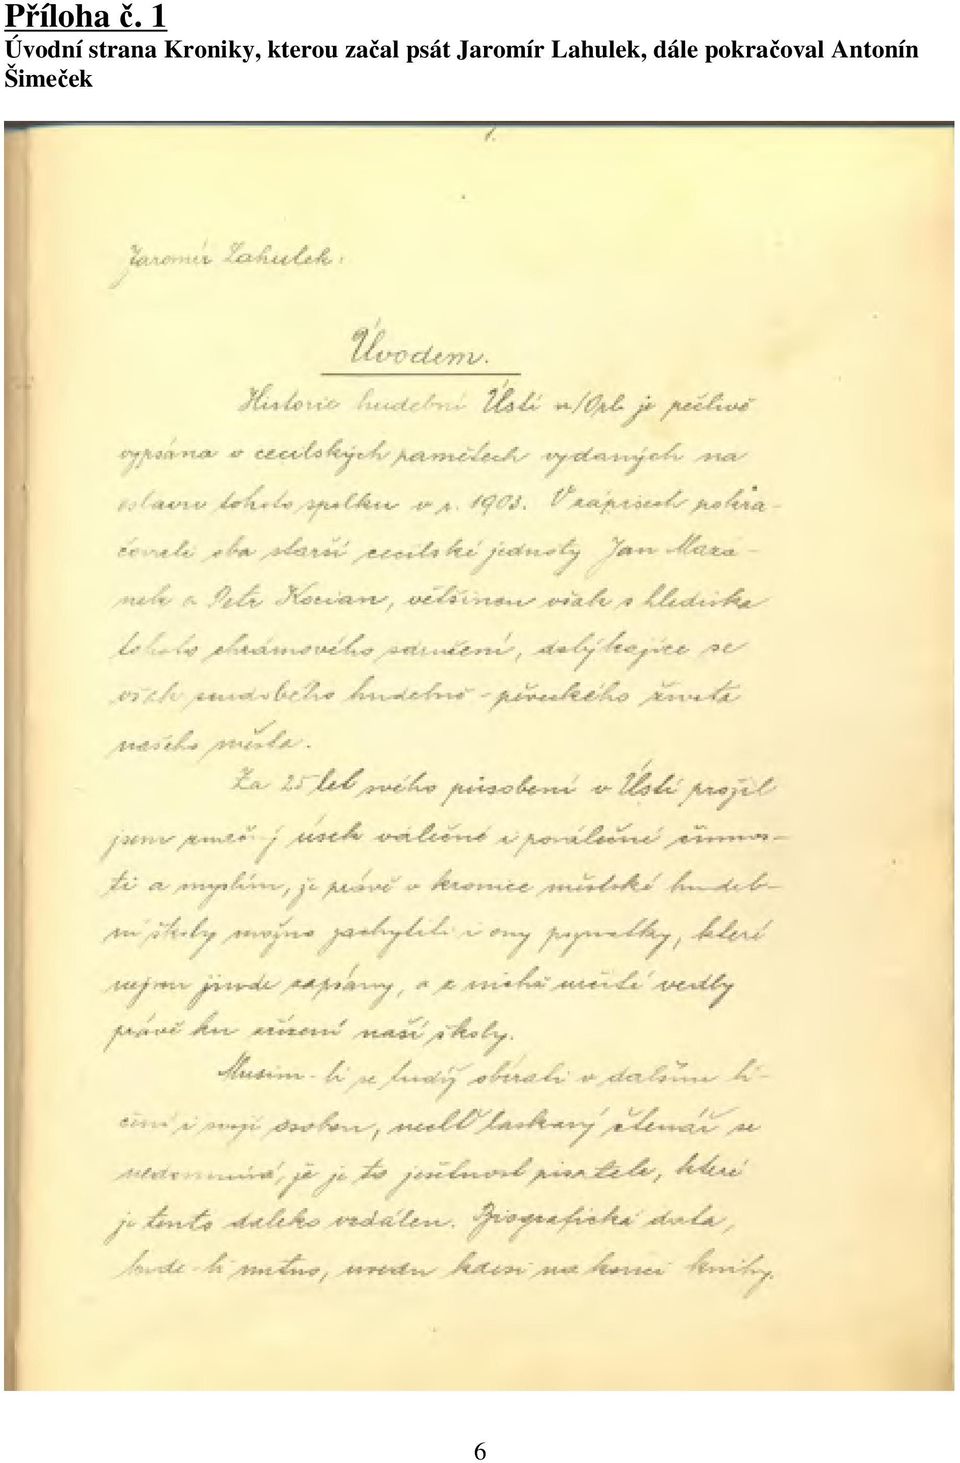 Příloha č. 1
Úvodní strana Kroniky, kterou začal psát Jaromír Lahulek, dále pokračoval Antonín
Šimeček
1.
Jaromír Lahulek:
Úvodem.
Historie hudební Ústí n/Orl. je pečlivě
vypsána v cecilských pamětech vydaných na
oslavu tohoto spolku v r. 1903. V zápisech pokra-
čovali oba starší cecilské jednoty Jan Mazá-
nek a Petr Kocian, většinou však s hlediska
tohoto chrámového sdružení, dotýkajíce se
všeho hudebně-pěveckého života
našeho města.
Za 25 let svého působení v Ústí prožil
jsem úsek válečné i poválečné činnos-
ti a myslím, že právě v kronice městské hudeb-
ní školy možno zachytiti i ony poznatky, které
nejsou jinde zapsány, a z nichž určité vedly
právě ku zřízení naší školy.
Musím-li se tudíž obírati v dalším lí-
čení i svojí osobou, nechť laskavý čtenář se
nedomnívá, že je to ješitnost pisatele, které
je tento dalek vzdálen. Biografická data,
bude-li nutno, uvedu kdesi na konci knihy.
6